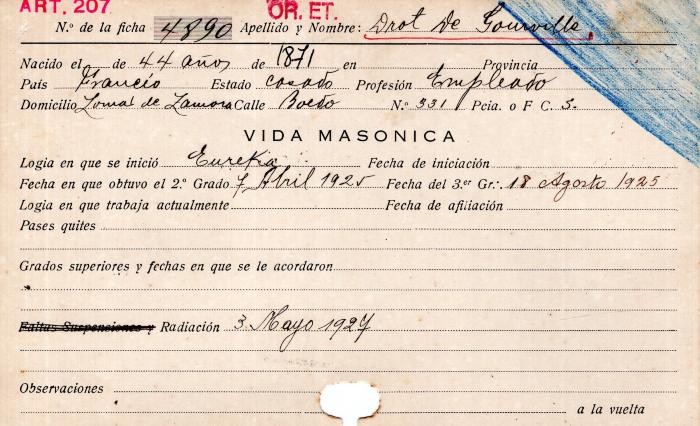 ART. 207 OR. ET.
N.º de la ficha 4890 Apellido y Nombre: Drot de Gourville.
Nacido el de 44 años de 1871 en Provincia
País Francia Estado casado Profesión Empleado
Domicilio Lomas de Zamora Calle Boedo N.º 331 Pcia. o F C. S.
VIDA MASONICA
Logia en que se inició Eureka Fecha de iniciación
Fecha en que obtuvo el 2.º Grado 7 Abril 1925 Fecha del 3.er Gr.·. 18 Agosto 1925
Logia en que trabaja actualmente Fecha de afiliación
Pases quites
Grados superiores y fechas en que se le acordaron
Faltas Suspensiones y Radiación 3 Mayo 1927
Observaciones
a la vuelta